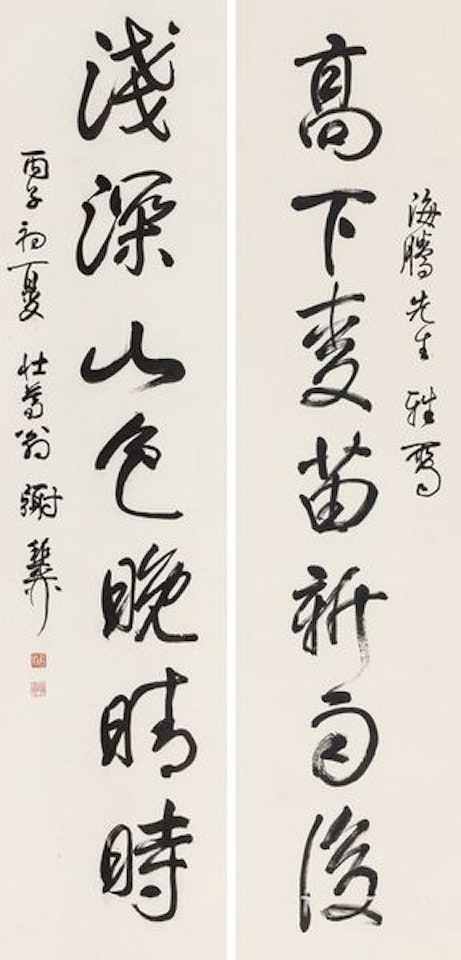 海騰先生 雅屬
高下麥苗新雨後
淺深山色晚晴時
丙子初夏 壯暮翁 謝稚柳